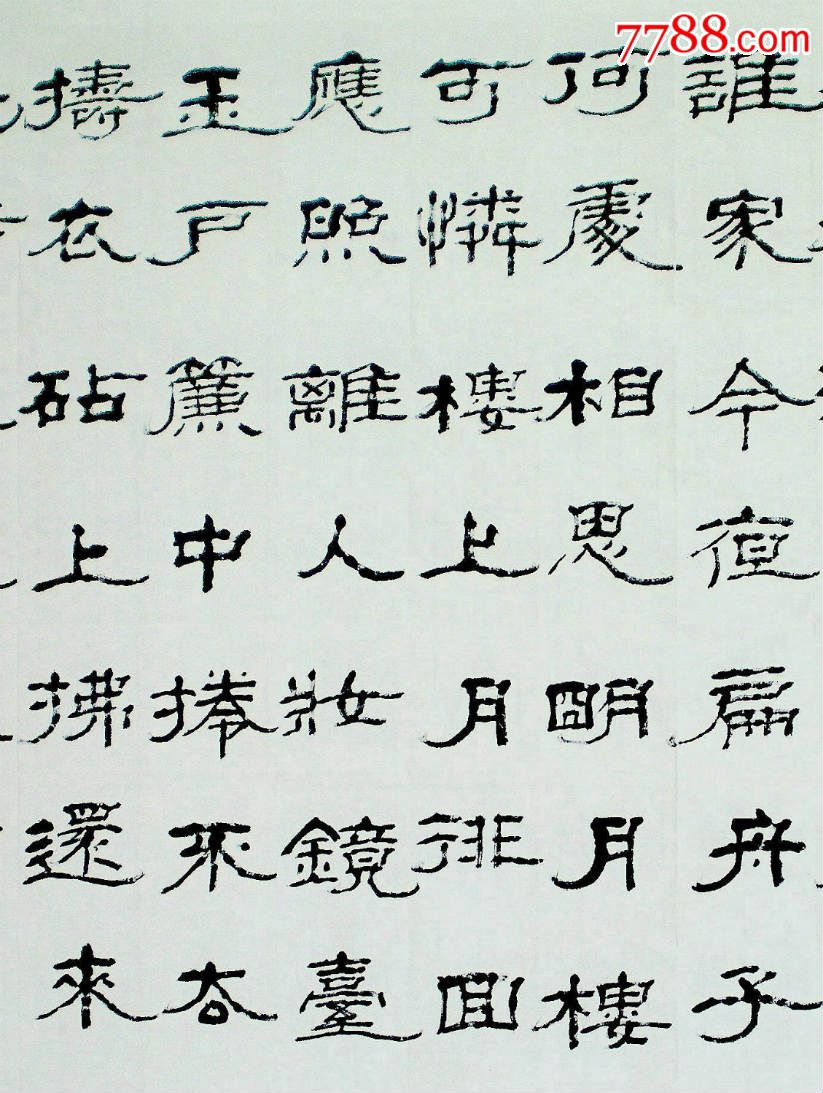 7788.com
誰家今扁舟子
何處相思明月樓
可憐樓上月徘回
應照離人妝鏡臺
玉戶簾中捲不去
擣衣砧上拂還來